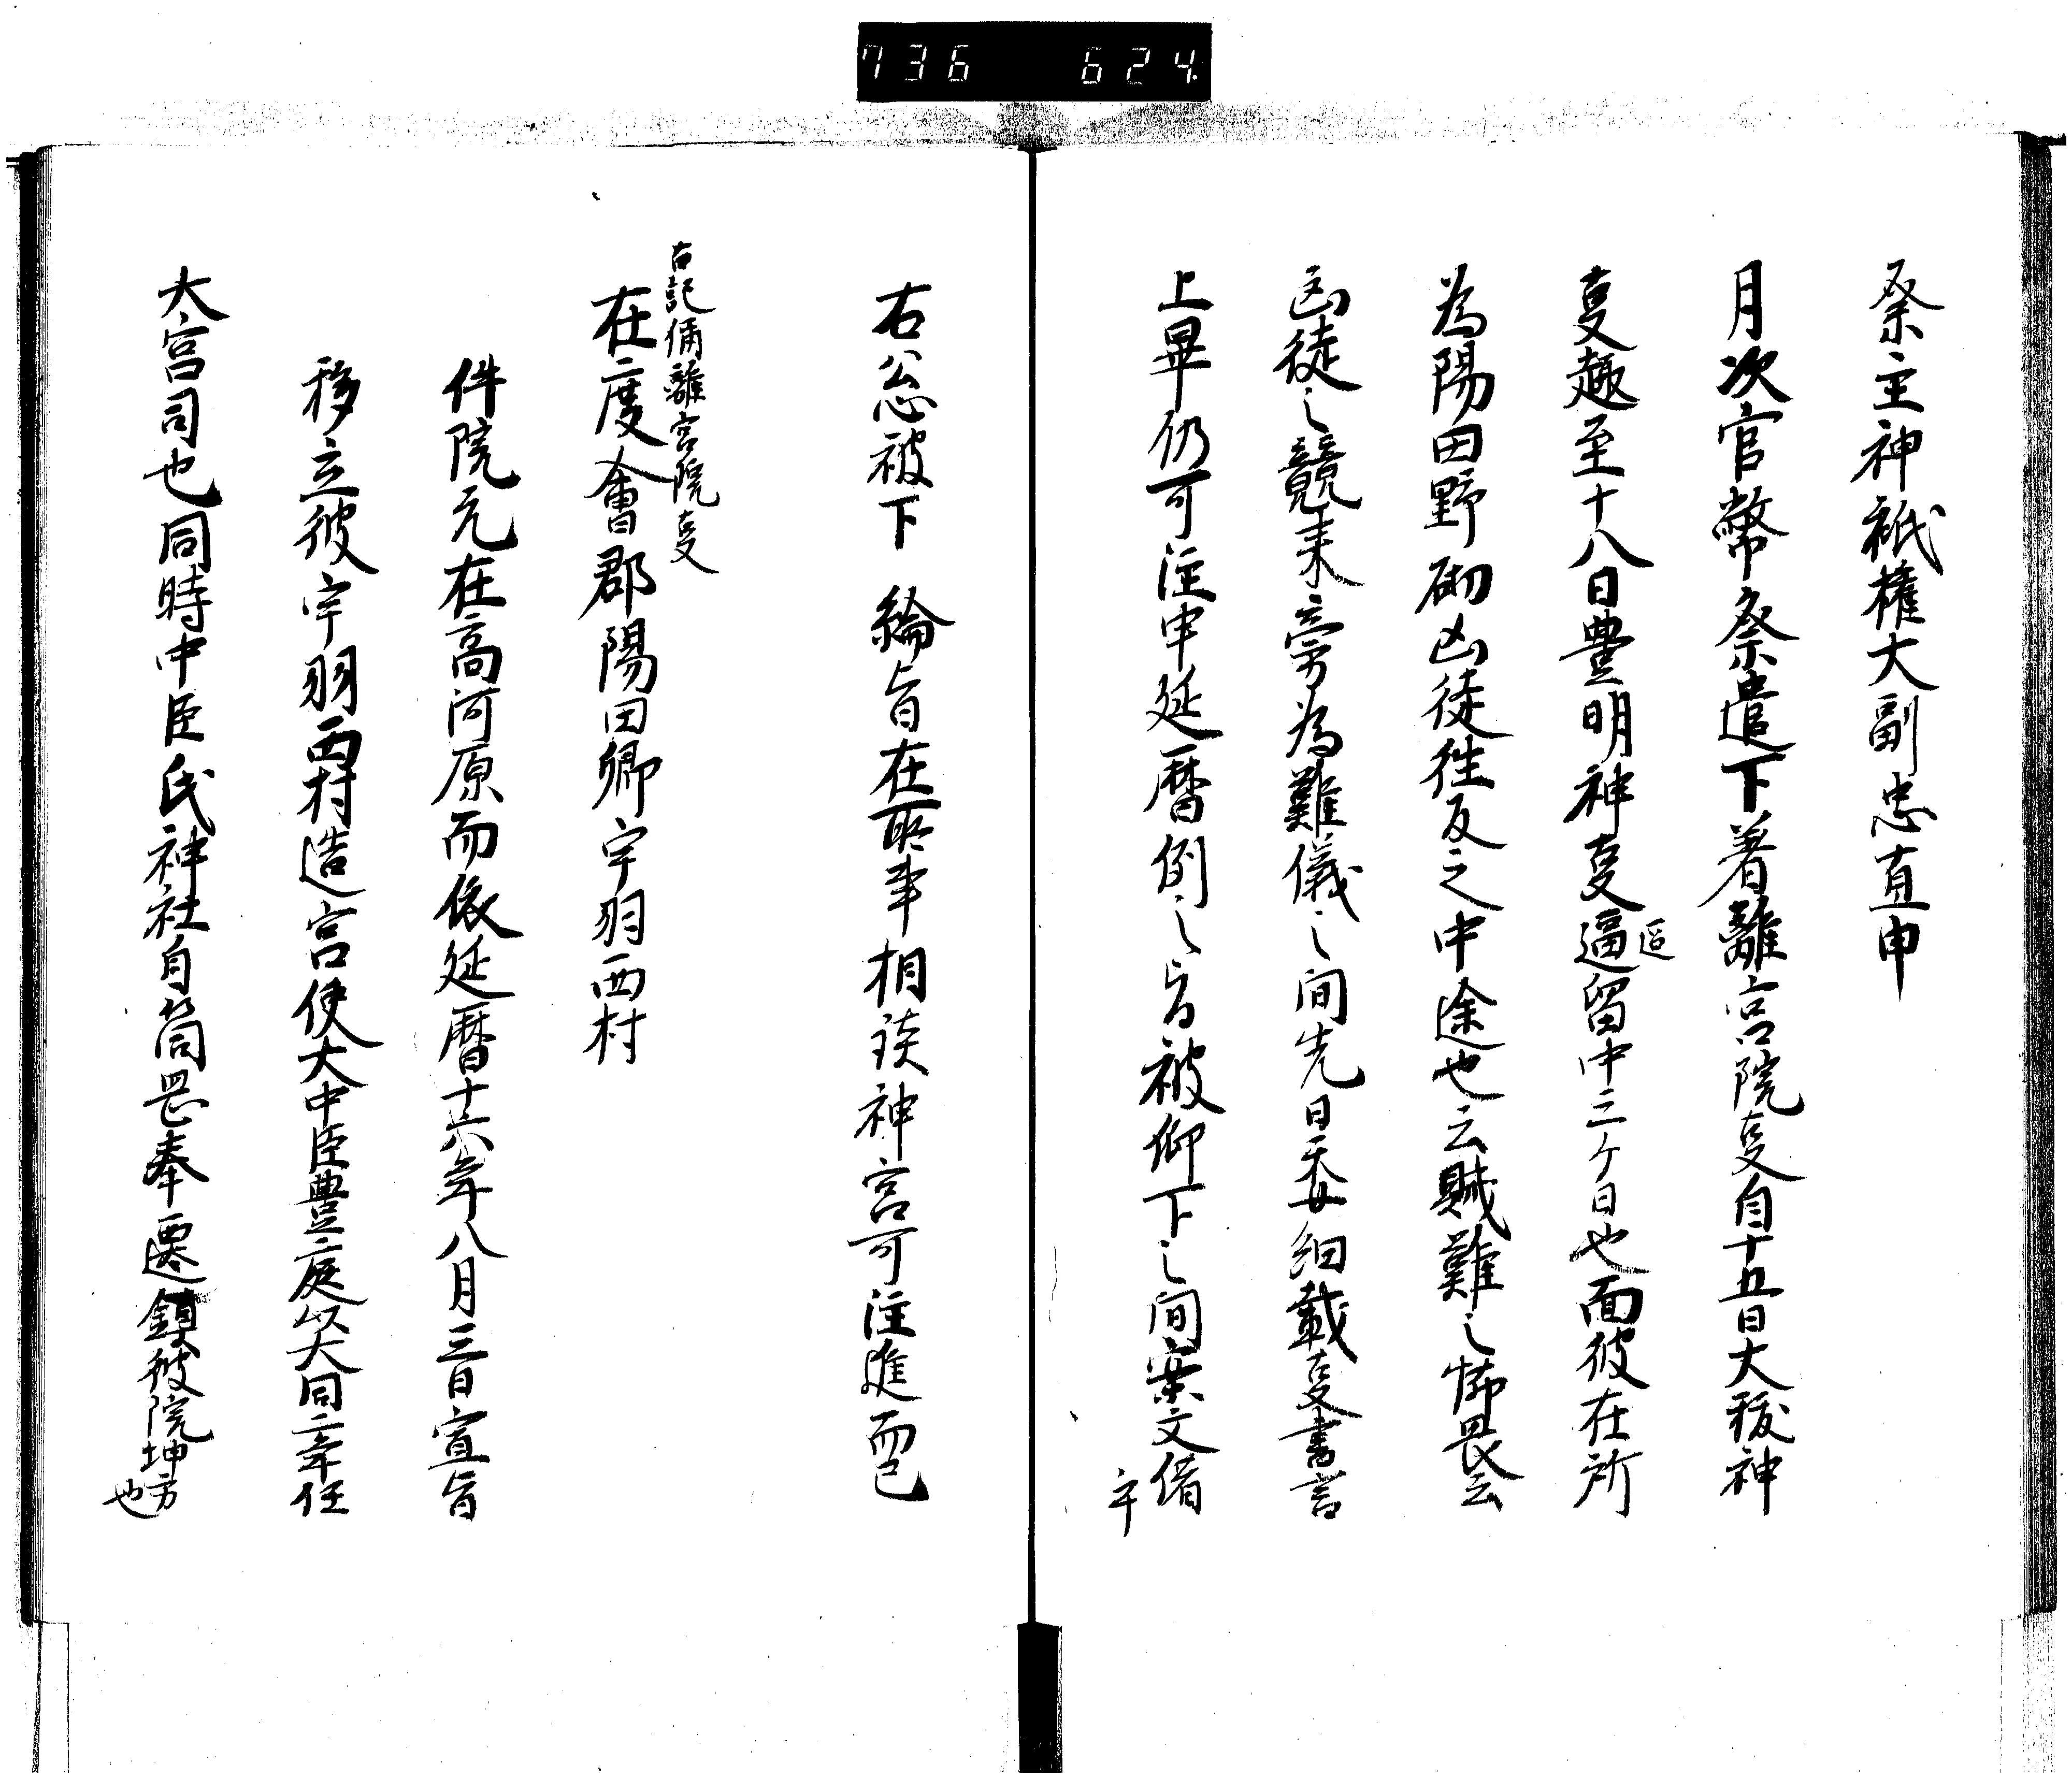 736 624
祭主神祇権大副忠直申
月次官幣祭遣下着離宮院叓自十五日大祓神
叓趣至十八日豊明神叓逼留中三ケ日也面彼在所
逗
為陽田野砌凶徒往反之中途也云賊難之怖畏云
凶徒之競来旁為難儀之間先日委細載叓書言
上畢仍可注申延暦例之旨被仰下之間案文備
右
公忩被下 綸旨在所事相談神宮可注進而已
古記偁離宮院叓
在度會郡陽田郷宇羽西村
件院元在高河原而依延暦十六年八月三日宣旨
移立彼宇羽西村造宮使大中臣豊庭以大同二年任
大宮司也同時中臣氏神社自筒岡奉遷鎮彼院坤方
也